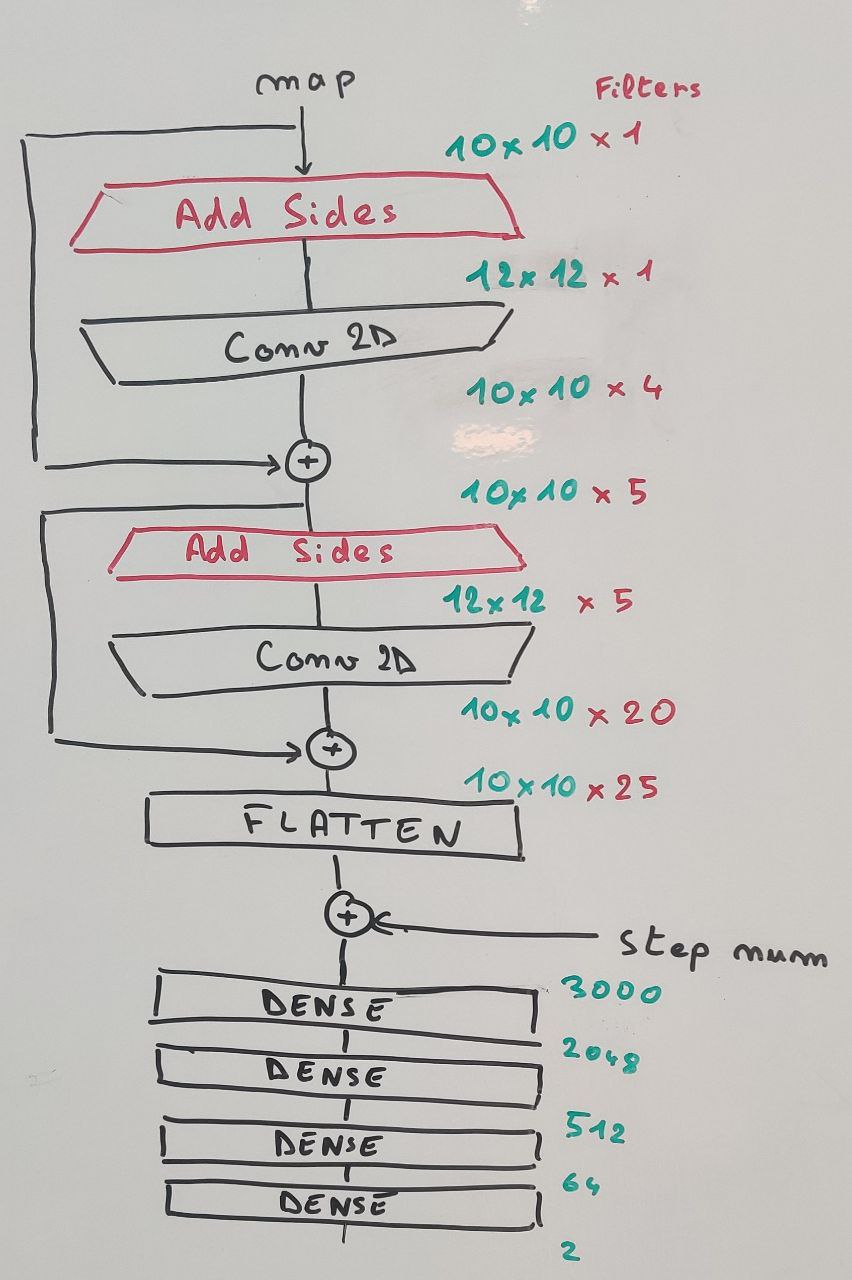 map
Filters
10x10 x 1
Add Sides
12x12 x 1
Conv 2D
10x10 x 4
+
10x10 x 5
Add Sides
12x12 x 5
Conv 2D
10x10 x 20
+
10x10 x 25
FLATTEN
+
step num
DENSE
3000
2048
DENSE
512
DENSE
64
DENSE
2